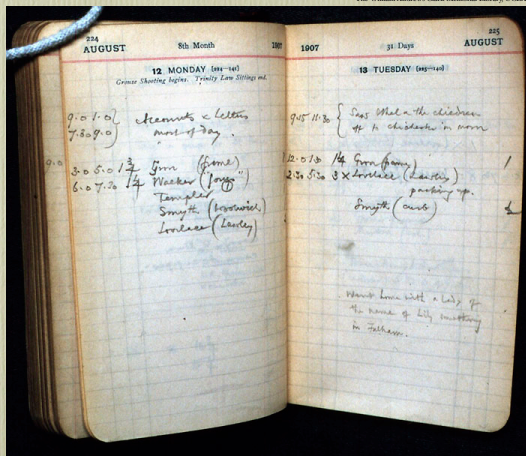 224
AUGUST 8th Month 1907
12 MONDAY (224—141)
Grouse Shooting begins. Trinity Law Sittings end.
9.0 1.0 Accounts & Letters
7.30 9.0 most of day.
9.0
3.0 5.0 1¾ Gron (frome)
6.0 7.30 1¼ Walker
Templer
Smyth (Woolwich)
Lovelace (Lawley)
225
1907 31 Days AUGUST
13 TUESDAY (225—140)
9.15 11.30 Saw Ethel & the children
off to in morn
12.0 1.30 1¼ Gron
2.30 5.30 3 × Lovelace (Lawley)
packing up.
Smyth
Went home with a lady of
the name of Lily something
in Fulham.